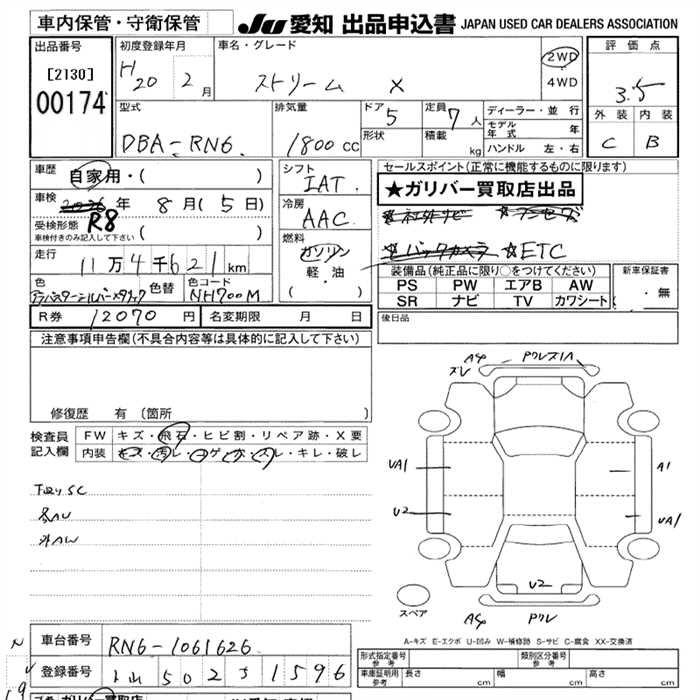 車内保管・守衛保管
JU 愛知 出品申込書 JAPAN USED CAR DEALERS ASSOCIATION
出品番号
[2130]
00174
初度登録年月
H 20 2 月
車名・グレード
ストリーム X
2WD
4WD
評価点
3.5
外装 内装
C B
型式
DBA-RN6
排気量
1800 cc
ドア 5
形状
定員 7 人
積載 kg
ディーラー・並行
モデル年式 年
ハンドル 左・右
車歴 自家用・( )
車検 R8 年 8 月 ( 5 日)
受検形態
車検付きのみ記入して下さい ( )
走行
11 万 4 千 621 km
色 アラバスターシルバーメタリック 色替 色コード NH700M
シフト
IAT
冷房
AAC
燃料
ガソリン
軽・油
( )
セールスポイント(正常に機能するものに限ります)
★ガリバー買取店出品
★社外ナビ ★ワンセグ
★バックカメラ ★ETC
装備品(純正品に限り○をつけてください)
PS PW エアB AW
SR ナビ TV カワシート
新車保証書
・無
R券 12070 円 名変期限 月 日
後日品
注意事項申告欄(不具合内容等は具体的に記入して下さい)
修復歴 有 (箇所
検査員記入欄
FW キズ・飛石・ヒビ割・リペア跡・X要
内装 キズ・汚レ・コゲ・穴・スレ・キレ・破レ
下廻りSC
各AU
外AW
A4 スレ
PクレスリA
UA1
U2
A1
UA1
U2
A4
Pクレ
スペア
A-キズ E-エクボ U-凹み W-補修跡 S-サビ C-腐食 XX-交換済
車台番号 RN6-1061626
登録番号 502 す 1596
型式指定番号 参考
類別区分番号 参考
車庫証明用 参考 長さ cm 幅 cm 高さ cm
ガリバー買取店